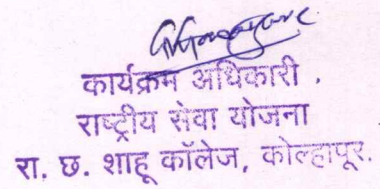 कार्यक्रम अधिकारी .
राष्ट्रीय सेवा योजना
रा. छ. शाहू कॉलेज, कोल्हापूर.